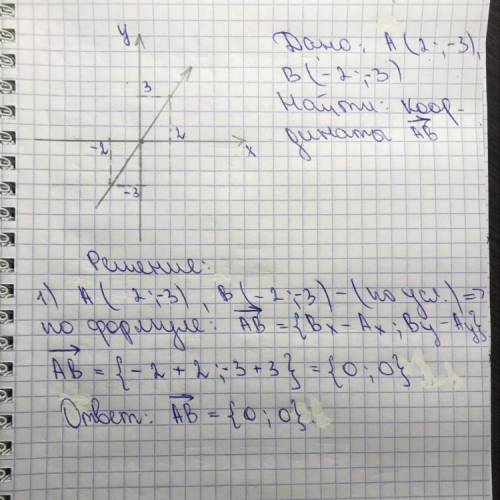 y
3
-2
2
x
-3
Дано: A(2;-3),
B(-2;-3)
Найти: коор-
динаты AB
Решение:
1) A( 2;-3), B(-2;-3) - (по усл.) =>
по формуле: AB = {Bx - Ax; By - Ay}
AB = {-2+2; -3+3} = {0; 0}
Ответ: AB = {0; 0}.